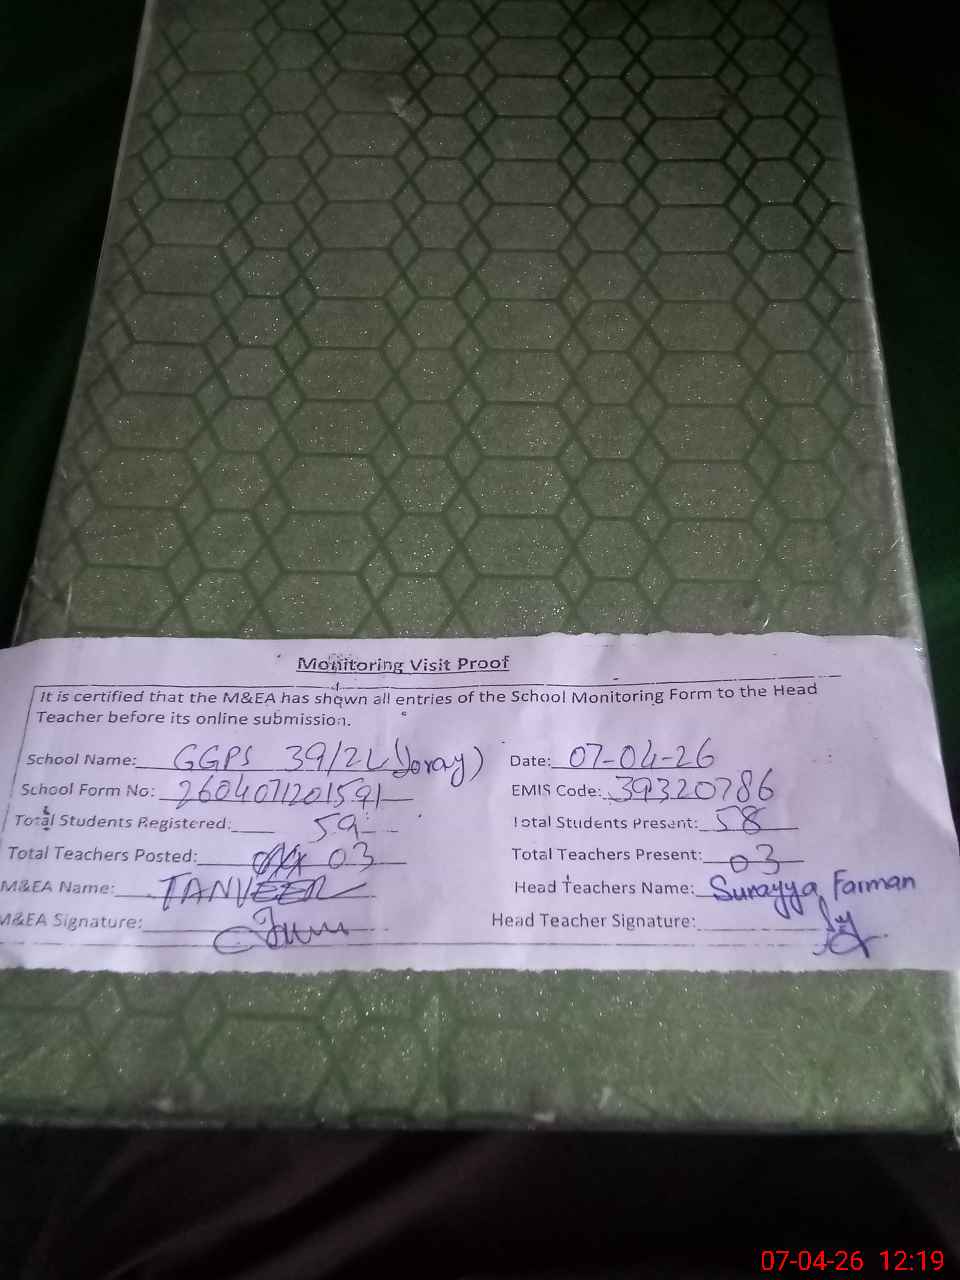 Monitoring Visit Proof
It is certified that the M&EA has shown all entries of the School Monitoring Form to the Head
Teacher before its online submission.
School Name: GGPS 39/2L (Joray) Date: 07-04-26
School Form No: 2604071201591 EMIS Code: 39320786
Total Students Registered: 59 Total Students Present: 58
Total Teachers Posted: 03 Total Teachers Present: 03
M&EA Name: TANVEER Head Teachers Name: Surayya Farman
M&EA Signature: Head Teacher Signature:
07-04-26 12:19